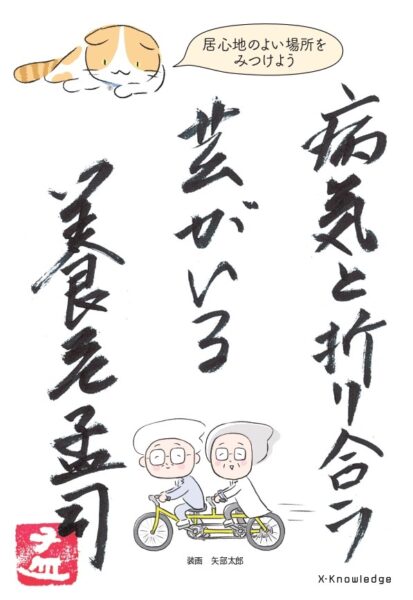 居心地のよい場所を
みつけよう
病気と折り合う
芸がいる
養老孟司
孟
装画 矢部太郎
X-Knowledge